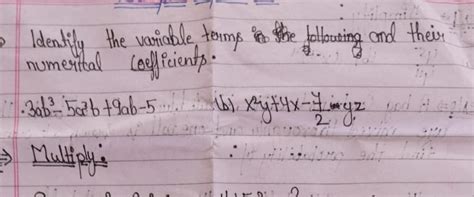 Identify the variable terms in the following and their
numerical Coefficients.
3ab³ - 5a²b + 9ab - 5 (b) x²y + 4x - y/2 - yz
⇒ Multiply: